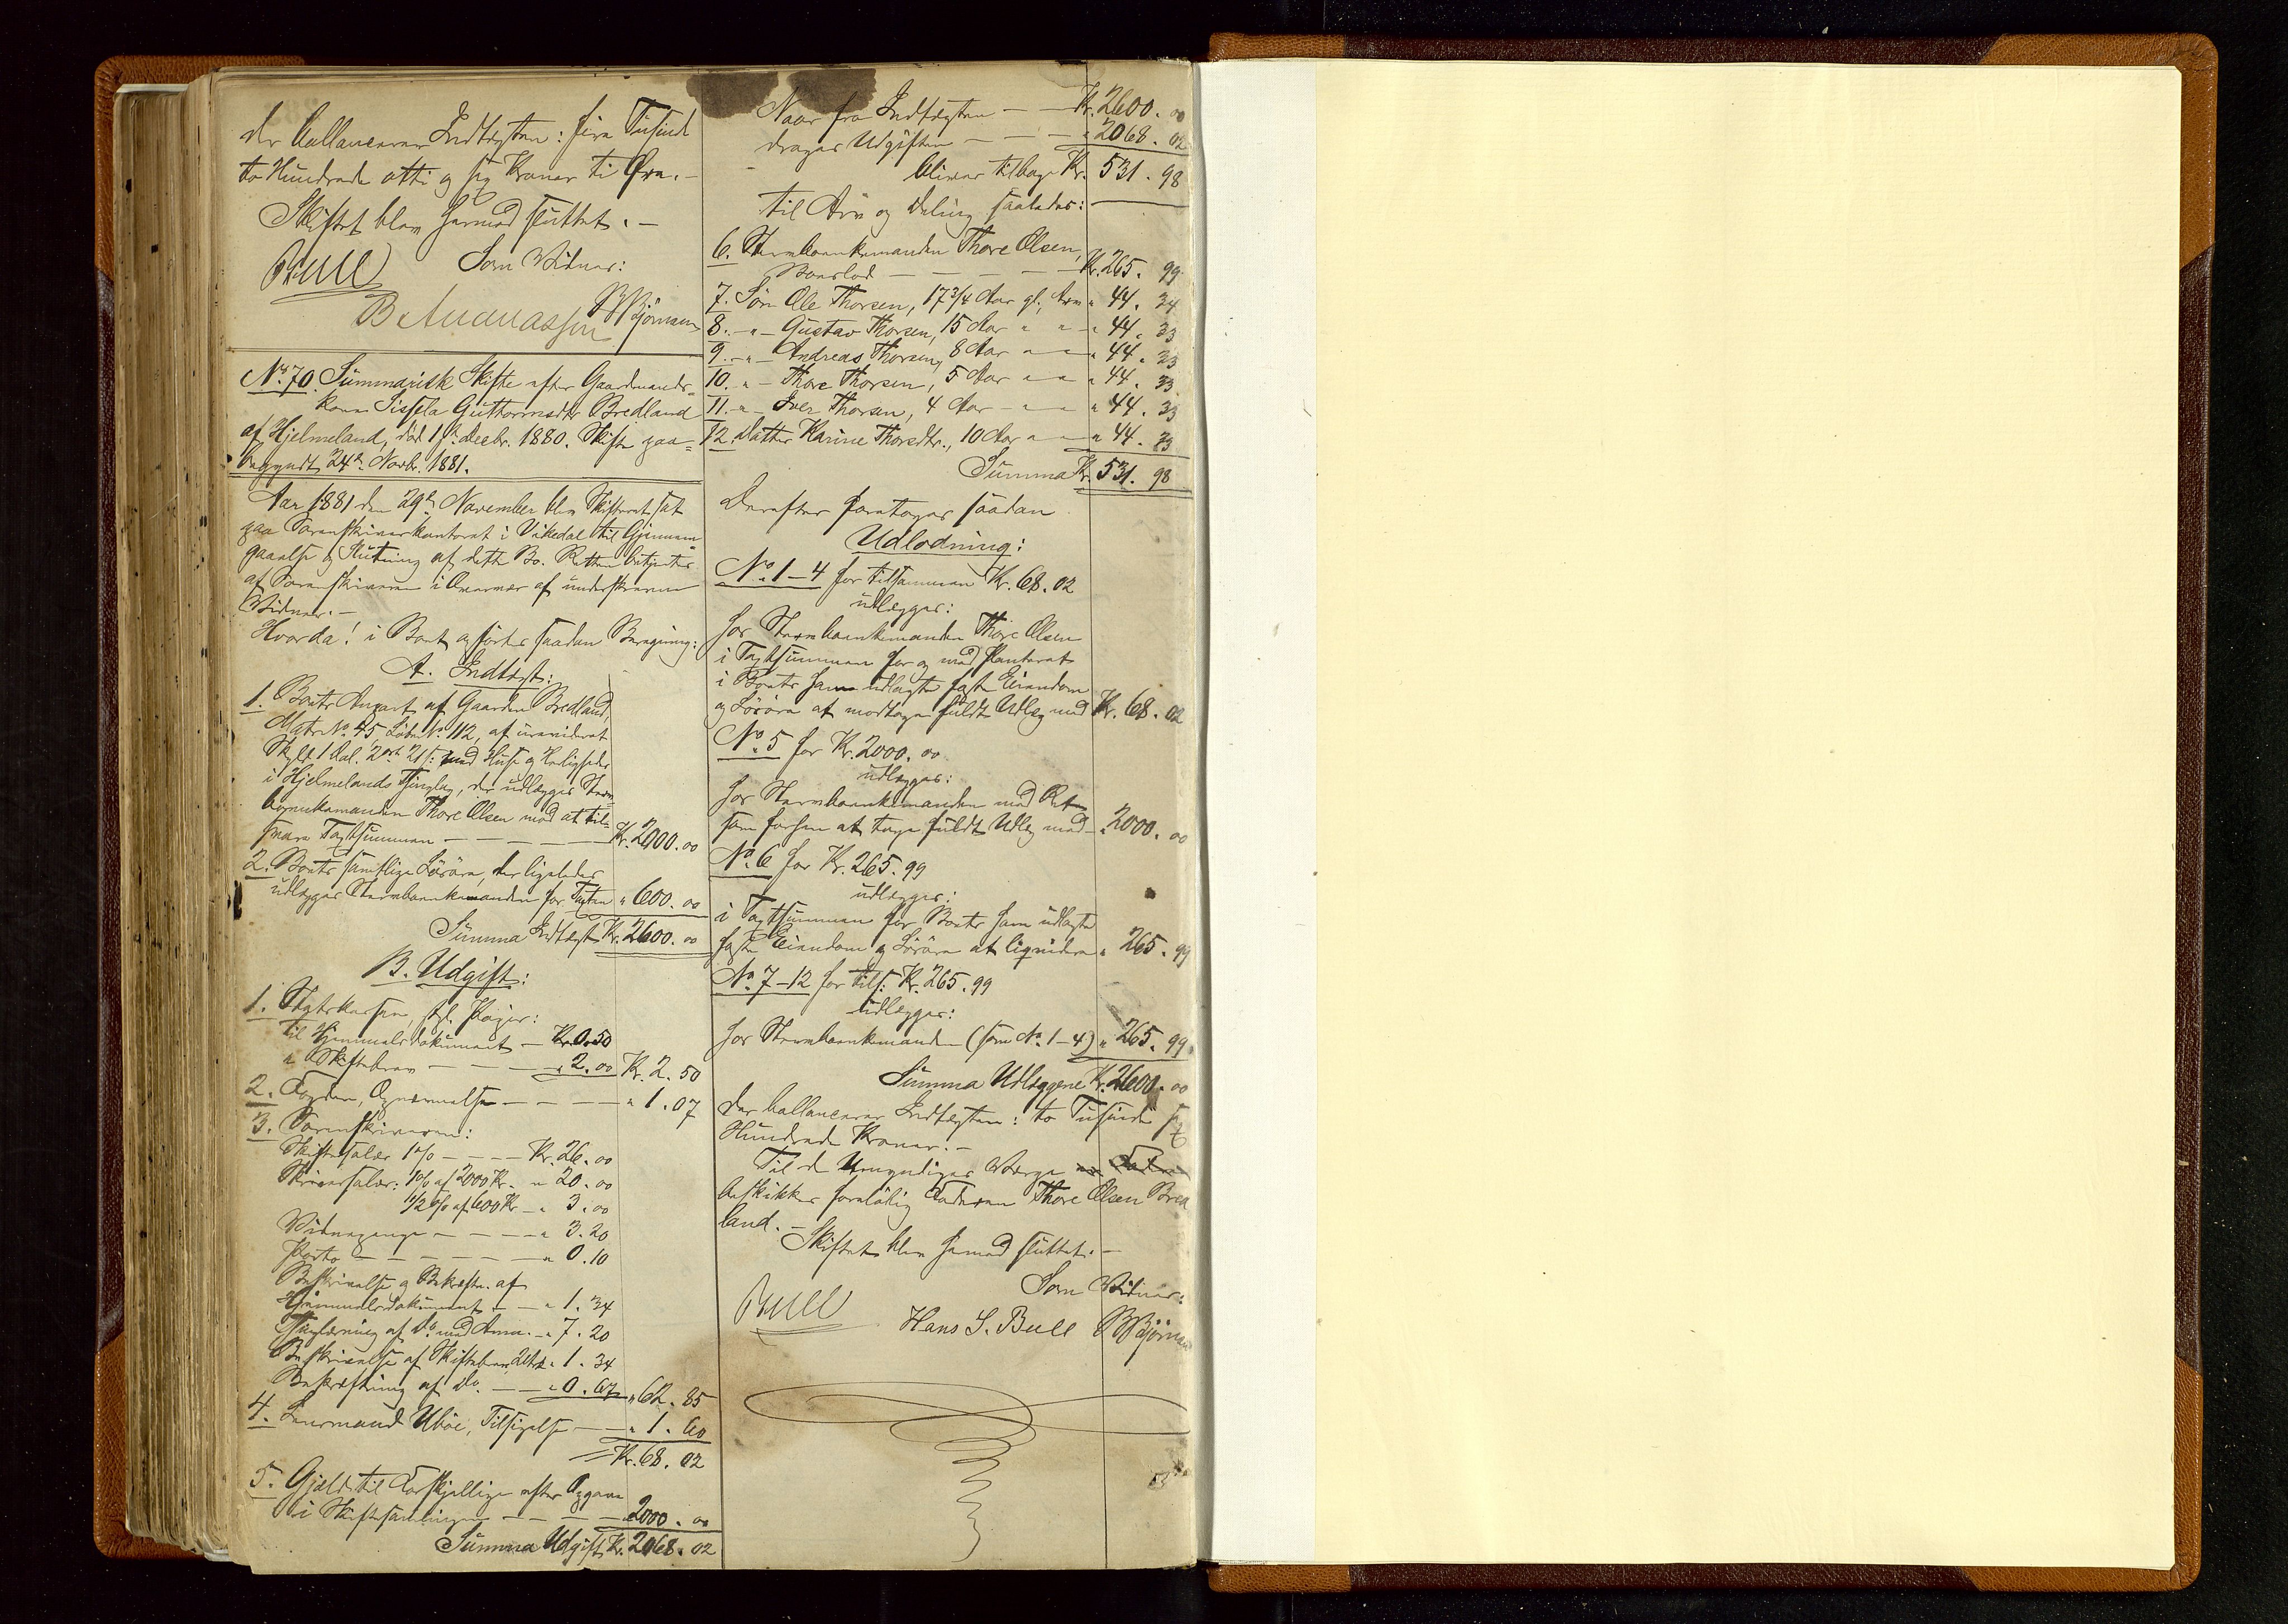 der ballancerer Indtægten: fire Tusind
to Hundrede otti og sex Kroner ti Øre.-
Skiftet blev hermed sluttet.-
Bull Som Vidner:
B Andreassen BBjörnsen
No. 70. Summarisk Skifte efter Gaardmands-
kone Sissela Guttormsdtr Bredland
af Hjelmeland, död 1ste Decbr. 1880. Skifte paa-
begyndt 24de Novbr. 1881.
Aar 1881 den 29de November blev Skifteret sat
paa Sorenskriverkontoret i Vikedal til Gjennem-
gaaelse og Slutning af dette Bo. Retten betjentes
af Sorenskriveren i Overvær af underskrevne
Vidner.-
Hvorda! i Boet opførtes saadan Beregning:
A. Indtægt:
1. Boets Anpart af Gaarden Bredland,
Matr No. 45 Löbe No. 112, af urevideret
Skyld 1 Dal. 2 ort 21 s: med Huse og Herligheder
i Hjelmelands Thinglag, der udlægges Sterv-
boenkemanden Thore Olsen mod at til-
svare Taxtsummen - - - - Kr. 2000.00
2. Boets samtlige Lösöre, der ligeledes
udlægges Stervboenkemanden for Taxten " 600.00
Summa Indtægt Kr. 2600.00
B. Udgift:
1. Statskassen, stpl. Papir:
til Hjemmelsdokument - Kr. 0.50
" Skiftebrev - - - " 2.00 Kr. 2.50
2. Fogden, Opnævnelse - - - - " 1.07
3. Sorenskriveren:
Skiftesalær 1% - - - - Kr. 26.00
Skriversalær: 1% af 2000 Kr. - " 20.00
1/2 % af 600 Kr - " 3.00
Vidnepenge - - - - " 3.20
Porto - - - - - - " 0.10
Beskrivelse og Bekræfte. af
Hjemmelsdokument - - " 1.34
Thinglæsning af do. med Anm. - " 7.20
Beskrivelse af Skiftebrev, 2 Ark " 1.34
Bekræftning af do. - - " 0.67 " 62.85
4. Lensmand Uböe, Tilsigelse - - " 1.60
Kr. 68.02
5. Gjæld til Forskjellige efter Opgave
i Skiftesamlingen - - - - " 2000.00
Summa Udgift Kr. 2068.02
Naar fra Indtægten - - Kr. 2600.00
drages Udgiften - - - " 2068.02
bliver tilbage Kr. 531.98
til Arv og Deling saaledes:
6. Stervboenkemanden Thore Olsen,
Boeslod - - - - - Kr. 265.99
7. Sön Ole Thorsen, 17 3/4 Aar gl., Arv " 44.34
8. - " - Gustav Thorsen, 15 Aar " " - " 44.33
9. - " - Andreas Thorsen, 8 Aar - " - " 44.33
10. " - Thore Thorsen, 5 Aar - " - " 44.33
11. - " - Iver Thorsen, 4 Aar - " - " 44.33
12. Datter Karine Thorsdtr., 10 Aar " - " 44.33
Summa Kr. 531.98
Derefter foretoges saadan
Udlodning:
No. 1-4 for tilsammen Kr. 68.02
udlægges:
hos Stervboenkemanden Thore Olsen
i Taxtsummen for og med Panteret
i Boets ham udlagte faste Eiendom
og Lösöre at modtage fuldt Udlæg med Kr. 68.02
No. 5 for Kr. 2000.00
udlægges:
hos Stervboenkemanden med Ret
som forhen at tage fuldt Udlæg med - " 2000.00
No. 6 for Kr. 265.99
udlægges:
i Taxtsummen for Boets ham udlagte
faste Eiendom og Lösöre at liquidere " 265.99
No. 7-12 for tils: Kr. 265.99
udlægges:
hos Stervboenkemanden (som No. 1-4) " 265.99
Summa Udlæggene Kr. 2600.00
der ballancerer Indtægten: to Tusinde sex
Hundrede Kroner.-
Til de Umyndiges Værge
beskikkes foreløbig Faderen Thore Olsen Bred-
land.-
Skiftet blev hermed sluttet.-
Som Vidner:
Bull Hans S. Bull BBjörnsen